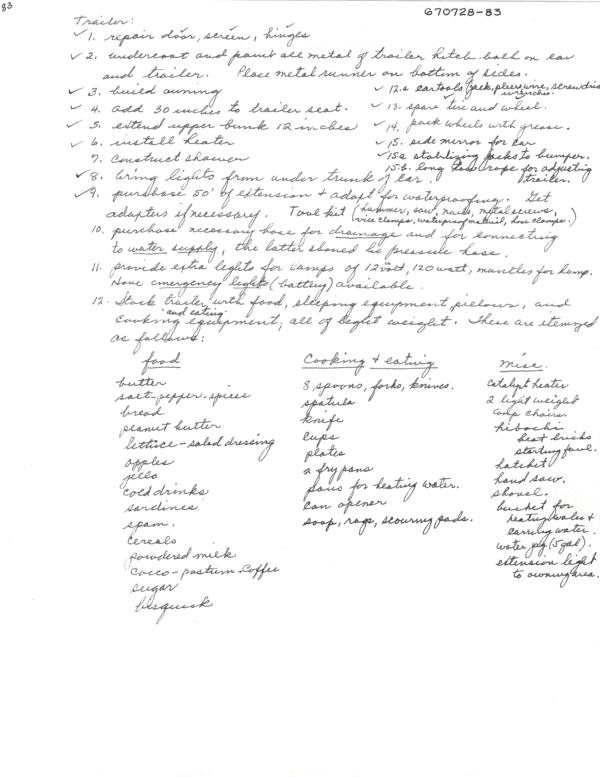 83
670728-83
Trailer:
✓ 1. repair door, screen, hinges
✓ 2. undercoat and paint all metal of trailer hitch both on car
and trailer. Place metal runner on bottom of sides.
✓ 3. build awning
✓ 4. add 30 inches to trailer seat.
✓ 5. extend upper bunk 12 inches
✓ 6. install heater
7. construct shower
✓ 8. bring lights from under trunk of car.
✓ 12.a car tools (jack, pliers, wire, screwdriver
wrenches.
✓ 13. spare tire and wheel.
✓ 14. pack wheels with grease.
✓ 15. side mirror for car
✓ 15a stabilizing jacks to bumper.
15b. long tow rope for adjusting
trailer.
✓ 9. purchase 50' of extension + adapt for waterproofing. Get
adapters if necessary. Tool kit (hammer, saw, nails, metal screws,
vice clamps, waterproof material, hose clamps.)
10. purchase necessary hose for drainage and for connecting
to water supply, the latter should be pressure hose.
11. provide extra lights for lamps of 12 volt, 120 watt, mantles for lamp.
Have emergency lights (battery) available.
12. Stock trailer with food, sleeping equipment pillows, and
cooking "and eating" equipment; all of light weight. These are itemized
as follows:
food
butter
salt-pepper-spices
bread
peanut butter
lettuce-salad dressing
apples
jello
cold drinks
sardines
spam.
cereals
powdered milk
cocco-postum-coffee
sugar
bisquick
Cooking + eating
8 spoons, forks, knives.
spatula
knife
cups
plates
2 fry pans
pans for heating water.
can opener
soap, rags, scouring pads.
misc.
catalyt heater
2 light weight
camp chairs.
hibachi
heat bricks
starting fuel.
hatchet
hand saw.
shovel.
bucket for
heating water +
carrying water.
water jug (5 gal).
extension light
to awning area.